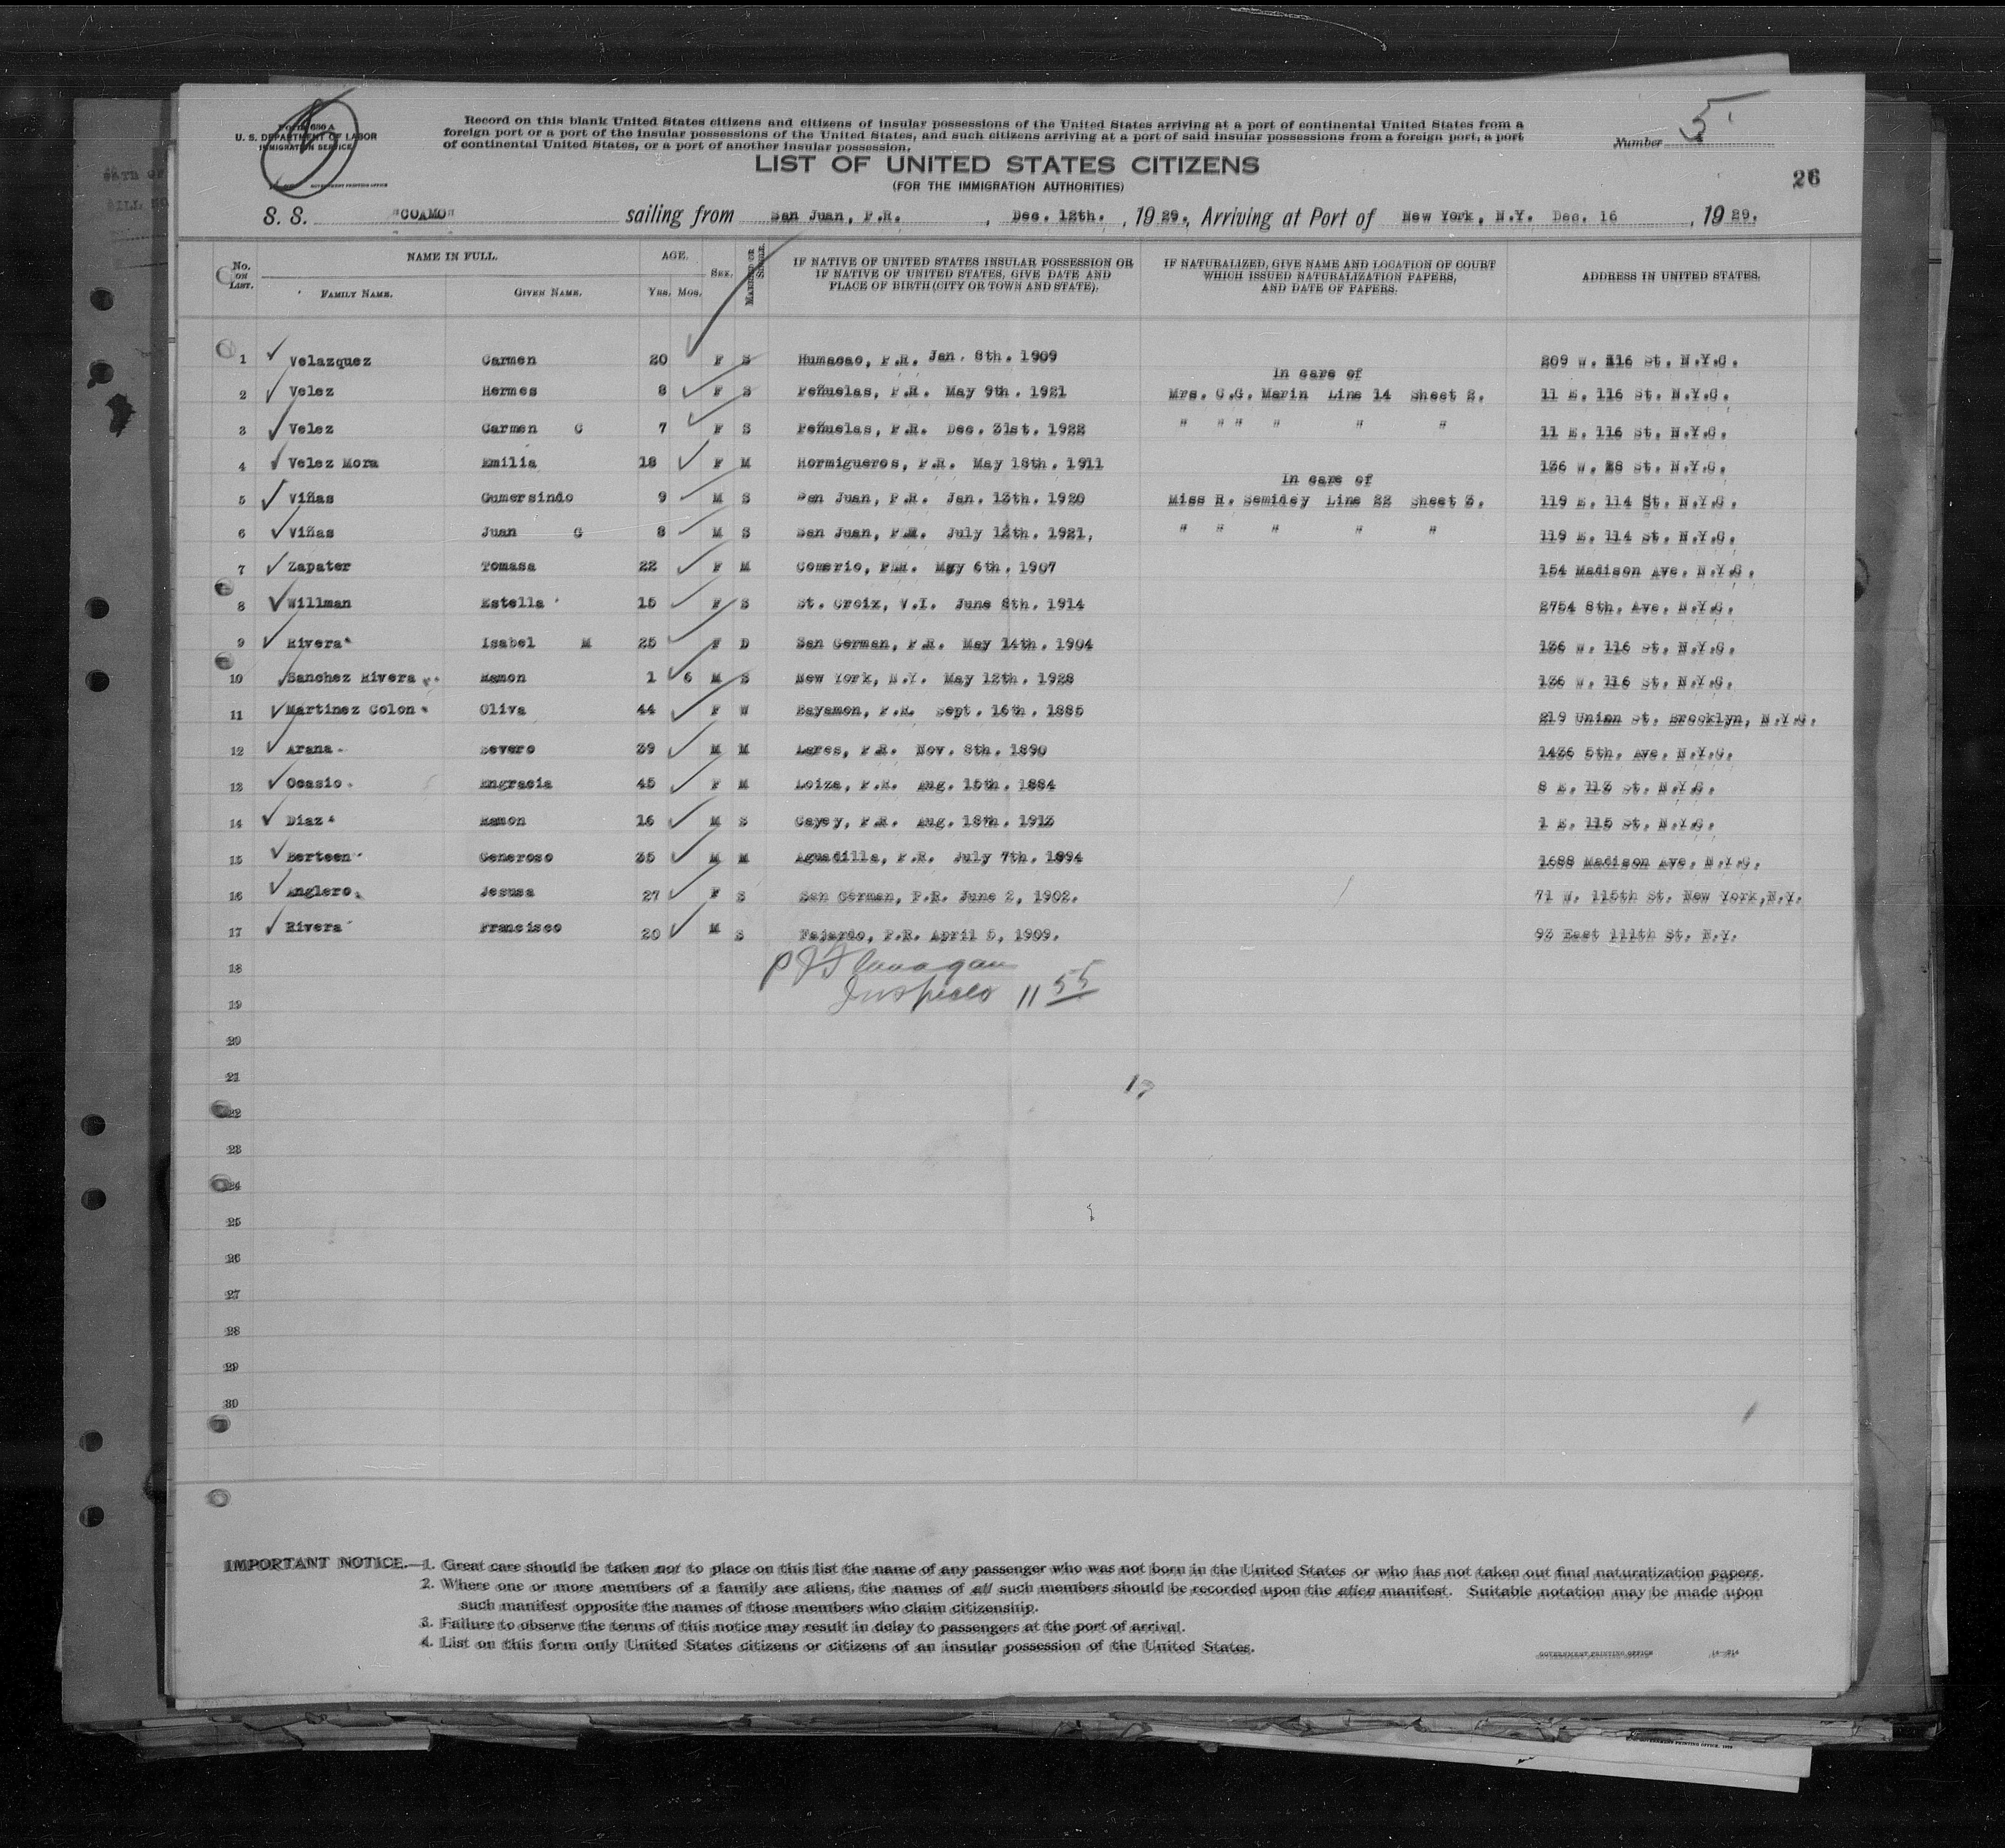 Form 630 A
U. S. DEPARTMENT OF LABOR
IMMIGRATION SERVICE
GOVERNMENT PRINTING OFFICE
Record on this blank United States citizens and citizens of insular possessions of the United States arriving at a port of continental United States from a
foreign port or a port of the insular possessions of the United States, and such citizens arriving at a port of said insular possessions from a foreign port, a port
of continental United States, or a port of another insular possession.
Number 5
LIST OF UNITED STATES CITIZENS
(FOR THE IMMIGRATION AUTHORITIES)
26
S. S. "COAMO" sailing from San Juan, P.R. , Dec. 12th. , 19 29, Arriving at Port of New York, N.Y. Dec. 16 , 19 29.
No. ON LIST. NAME IN FULL. FAMILY NAME. GIVEN NAME. AGE. YRS. MOS. SEX. MARRIED OR SINGLE. IF NATIVE OF UNITED STATES INSULAR POSSESSION OR IF NATIVE OF UNITED STATES, GIVE DATE AND PLACE OF BIRTH (CITY OR TOWN AND STATE). IF NATURALIZED, GIVE NAME AND LOCATION OF COURT WHICH ISSUED NATURALIZATION PAPERS, AND DATE OF PAPERS. ADDRESS IN UNITED STATES.
1 Velazquez Carmen 20 F S Humacao, P.R. Jan. 8th. 1909 209 W. 116 St. N.Y.C.
In care of
2 Velez Hermes 8 F S Peñuelas, P.R. May 9th. 1921 Mrs. C.G. Marin Line 14 Sheet 2. 11 E. 116 St. N.Y.C.
3 Velez Carmen C 7 F S Peñuelas, P.R. Dec. 31st. 1922 " " " " " " 11 E. 116 St. N.Y.C.
4 Velez Mora Emilia 18 F M Hormigueros, P.R. May 18th. 1911 136 W. 28 St. N.Y.C.
In care of
5 Viñas Gumersindo 9 M S San Juan, P.R. Jan. 13th. 1920 Miss R. Semidey Line 22 Sheet 3. 119 E. 114 St. N.Y.C.
6 Viñas Juan G 8 M S San Juan, P.R. July 12th. 1921, " " " " " 119 E. 114 St. N.Y.C.
7 Zapater Tomasa 22 F M Comerio, P.R. May 6th. 1907 154 Madison Ave. N.Y.C.
8 Willman Estella 15 F S St. Croix, V.I. June 8th. 1914 2754 8th. Ave. N.Y.C.
9 Rivera Isabel M 25 F D San German, P.R. May 14th. 1904 136 W. 116 St. N.Y.C.
10 Sanchez Rivera Ramon 1 6 M S New York, N.Y. May 12th. 1928 136 W. 116 St. N.Y.C.
11 Martinez Colon Oliva 44 F W Bayamon, P.R. Sept. 16th. 1885 219 Union St. Brooklyn, N.Y.C.
12 Arana Severo 39 M M Lares, P.R. Nov. 8th. 1890 1436 5th. Ave. N.Y.C.
13 Ocasio Engracia 45 F M Loiza, P.R. Aug. 15th. 1884 8 E. 113 St. N.Y.C.
14 Diaz Ramon 16 M S Cayey, P.R. Aug. 18th. 1913 1 E. 115 St. N.Y.C.
15 Berteen Generoso 35 M M Aguadilla, P.R. July 7th. 1894 1688 Madison Ave. N.Y.C.
16 Anglero Jesusa 27 F S San German, P.R. June 2, 1902. 71 W. 115th St. New York,N.Y.
17 Rivera Francisco 20 M S Fajardo, P.R. April 5, 1909. 93 East 111th St. N.Y.
18 P J Flanagan
19 Inspector 11 55
20
21
17
22
23
24
25
26
27
28
29
30
IMPORTANT NOTICE.—1. Great care should be taken not to place on this list the name of any passenger who was not born in the United States or who has not taken out final naturalization papers.
2. Where one or more members of a family are aliens, the names of all such members should be recorded upon the alien manifest. Suitable notation may be made upon
such manifest opposite the names of those members who claim citizenship.
3. Failure to observe the terms of this notice may result in delay to passengers at the port of arrival.
4. List on this form only United States citizens or citizens of an insular possession of the United States.
GOVERNMENT PRINTING OFFICE 14—214